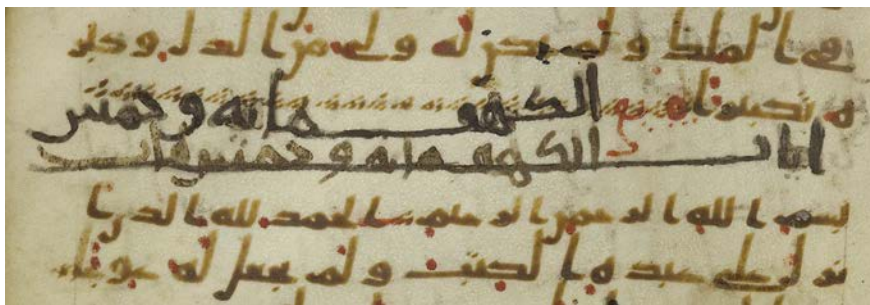 في الملك و لم يكن له ولي من الذل وكبر
ه تكبيرا
الكهف مايه وخمس
ايات الكهف مايه وخمس ايات
بسم الله الرحمن الرحيم الحمد لله الذي ا
نزل على عبده الكتب و لم يجعل له عوجا